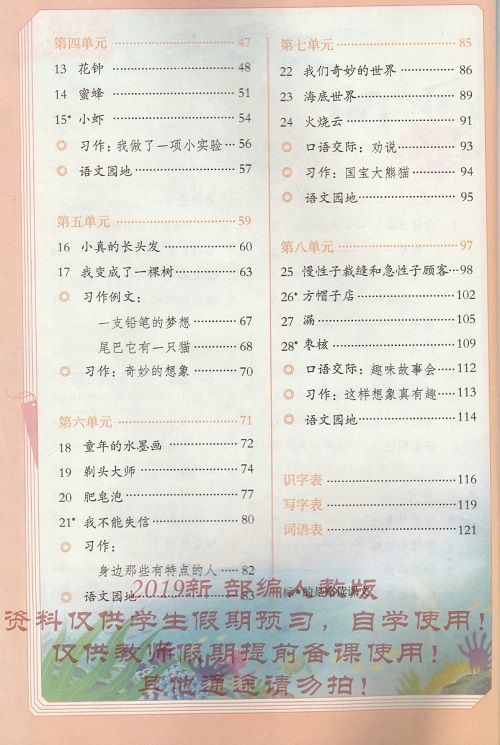 第四单元 ………………… 47
13 花钟 ………………… 48
14 蜜蜂 ………………… 51
15* 小虾 ………………… 54
◎ 习作：我做了一项小实验… 56
◎ 语文园地 ………………… 57
第五单元 ………………… 59
16 小真的长头发 ………………… 60
17 我变成了一棵树 ………………… 63
◎ 习作例文：
一支铅笔的梦想 ………………… 67
尾巴它有一只猫 ………………… 68
◎ 习作：奇妙的想象 ………………… 70
第六单元 ………………… 71
18 童年的水墨画 ………………… 72
19 剃头大师 ………………… 74
20 肥皂泡 ………………… 77
21* 我不能失信 ………………… 80
◎ 习作：
身边那些有特点的人 …… 82
◎ 语文园地 ………………… 83
第七单元 ………………… 85
22 我们奇妙的世界 ………………… 86
23 海底世界 ………………… 89
24 火烧云 ………………… 91
◎ 口语交际：劝说 ………………… 93
◎ 习作：国宝大熊猫 ………………… 94
◎ 语文园地 ………………… 95
第八单元 ………………… 97
25 慢性子裁缝和急性子顾客…98
26* 方帽子店 ………………… 102
27 漏 ………………… 105
28* 枣核 ………………… 109
◎ 口语交际：趣味故事会 …112
◎ 习作：这样想象真有趣 …113
◎ 语文园地 ………………… 114
识字表 ………………… 116
写字表 ………………… 119
词语表 ………………… 121
标*的是略读课文
2019新 部编人教版
资料仅供学生假期预习，自学使用！
仅供教师假期提前备课使用！
其他通途请勿拍！